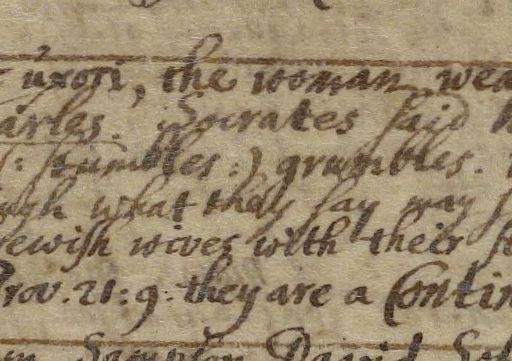 uxori, the woman wea
arles. Socrates said h
(: stumbles:) grumbles.
ugh what they say may
ewish wives with their
Prov. 21:9: they are a Contin
Sampson David